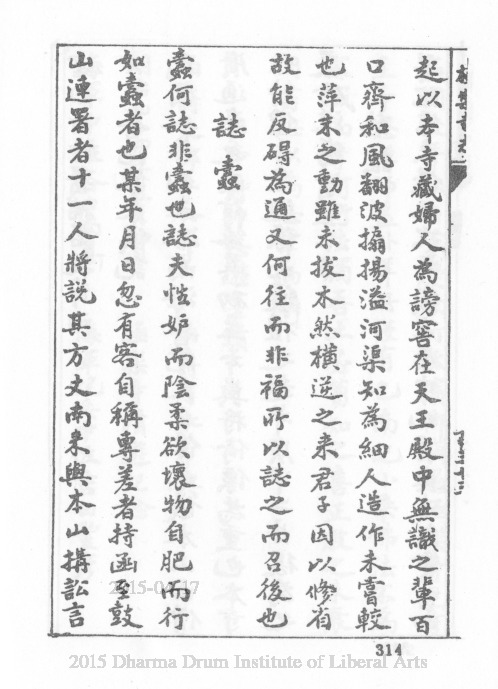 起以本寺藏婦人為謗窖在天王殿中無識之輩百
口齊和風翻波搧揚溢河渠知為細人造作未嘗較
也萍末之動雖未拔木然橫逆之来君子因以修省
故能反碍為通又何往而非福所以誌之而召後也
誌蠹
蠹何誌非蠹也誌夫慆妒而陰柔欲壞物自肥而行
如蠹者也某年月日忽有客自稱專差者持函至鼓
山連署者十一人將說其方丈南来與本山搆訟言
314
2015-04-17
2015 Dharma Drum Institute of Liberal Arts